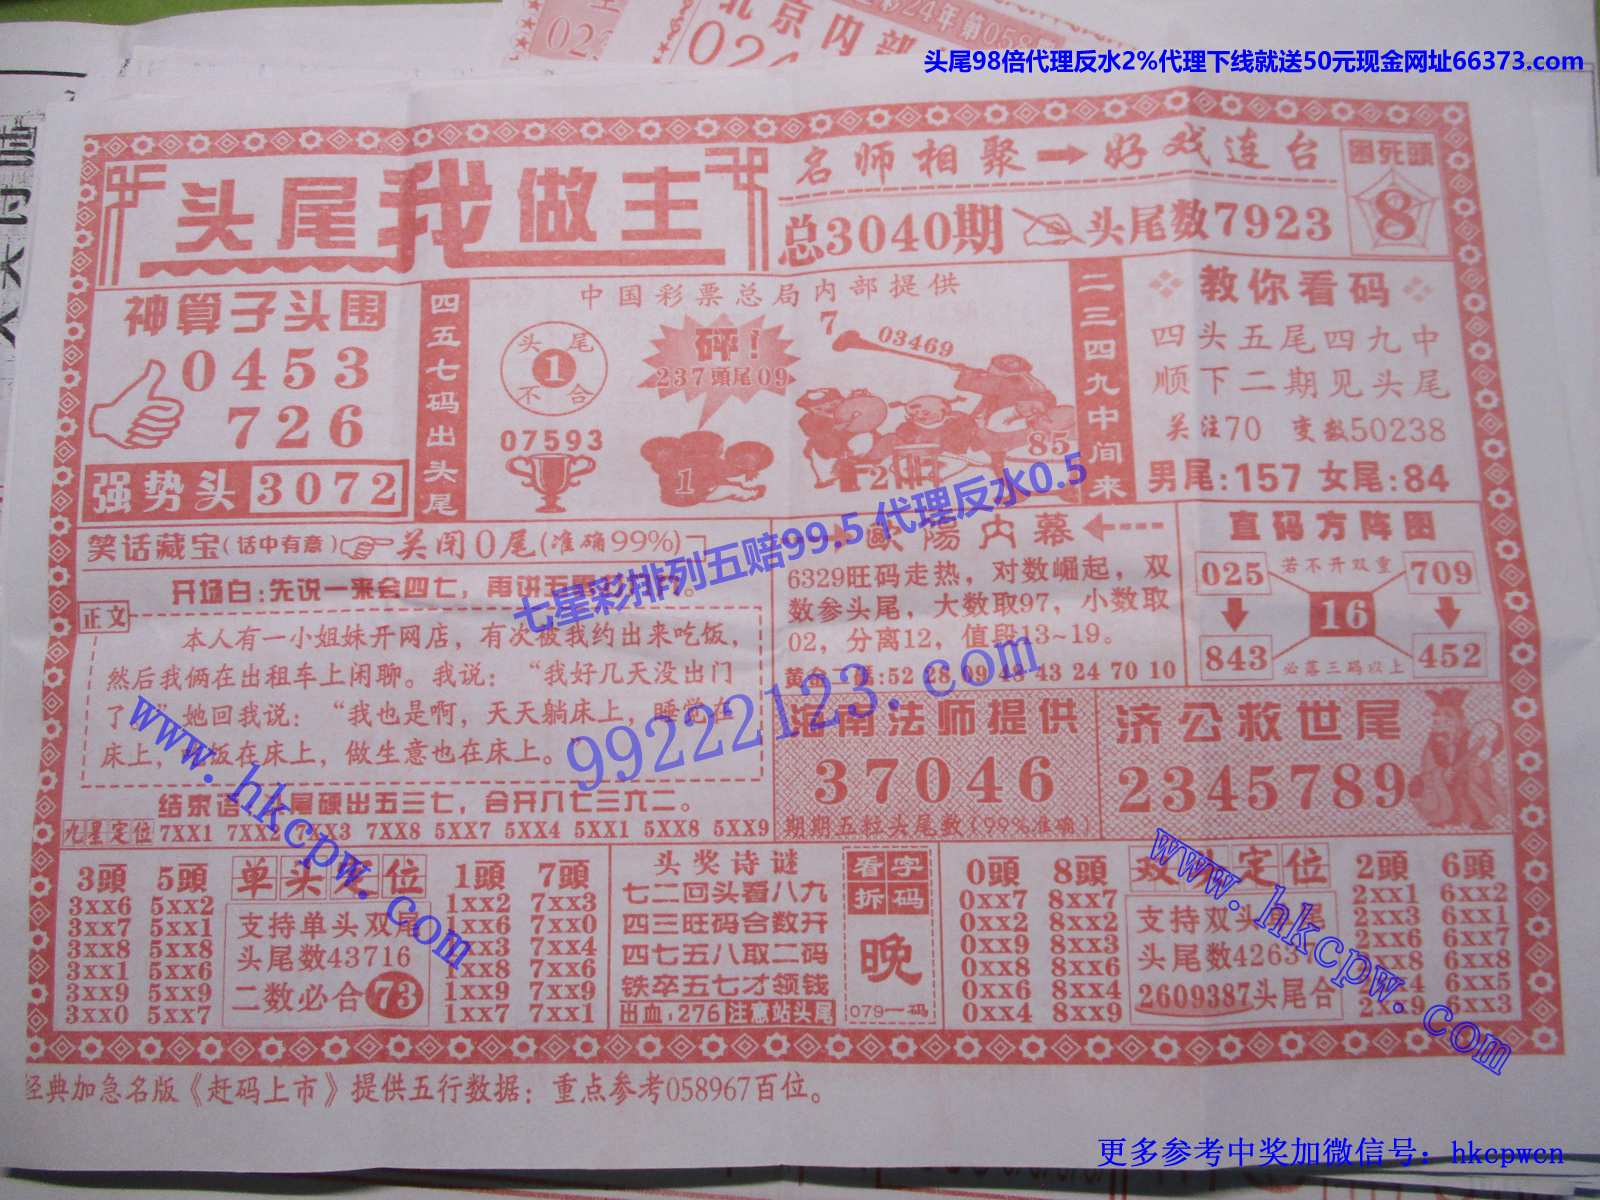 北京内部
第24年第058
头尾98倍代理反水2%代理下线就送50元现金网址66373.com
头尾我做主
名师相聚→好戏连台
总3040期 头尾数7923
困死頭
8
神算子头围
0453
726
强势头 3072
四五七码出头尾
中国彩票总局内部提供
头尾
1
不合
07593
砰!
237頭尾09
1
7
03469
2
85
二三四九中间来
教你看码
四头五尾四九中
顺下二期见头尾
关注70 变数50238
男尾:157 女尾:84
笑话藏宝(话中有意) 关闭0尾(准确99%)
开场白:先说一来会四七,再讲五
正文
本人有一小姐妹开网店,有次被我约出来吃饭,
然后我俩在出租车上闲聊。我说:“我好几天没出门
了”她回我说:“我也是啊,天天躺床上,睡觉在
床上,吃饭在床上,做生意也在床上。
结束语:头尾硬出五三七,合开八七三六二。
九星定位 7XX1 7XX2 7XX3 7XX8 5XX7 5XX4 5XX1 5XX8 5XX9
歐陽内幕
6329旺码走热,对数崛起,双
数参头尾,大数取97,小数取
02,分离12,值段13~19。
黄金二码:52 28 09 48 43 24 70 10
直码方阵图
025 若不开双重 709
16
843 必落三码以上 452
海南法师提供
37046
期期五粒头尾数(99%准确)
济公救世尾
2345789
3頭 5頭
3xx6 5xx2
3xx7 5xx1
3xx8 5xx8
3xx1 5xx6
3xx9 5xx9
3xx0 5xx7
单头定位
支持单头双尾
头尾数43716
二数必合73
1頭 7頭
1xx2 7xx3
1xx6 7xx0
1xx3 7xx4
1xx8 7xx6
1xx9 7xx9
1xx7 7xx1
头奖诗谜
七二回头看八九
四三旺码合数开
四七五八取二码
铁卒五七才领钱
出血:276 注意站头尾
看字拆码
晚
079一码
0頭 8頭
0xx7 8xx7
0xx2 8xx2
0xx9 8xx3
0xx8 8xx6
0xx6 8xx4
0xx4 8xx9
双头定位
支持双头单尾
头尾数4263
2609387头尾合
2頭 6頭
2xx1 6xx2
2xx3 6xx1
2xx6 6xx7
2xx8 6xx8
2xx4 6xx5
2xx9 6xx3
经典加急名版《赶码上市》提供五行数据:重点参考058967百位。
七星彩排列五赔99.5 代理反水0.5
99222123.com
www.hkcpw.com
www.hkcpw.com
更多参考中奖加微信号:hkcpwcn